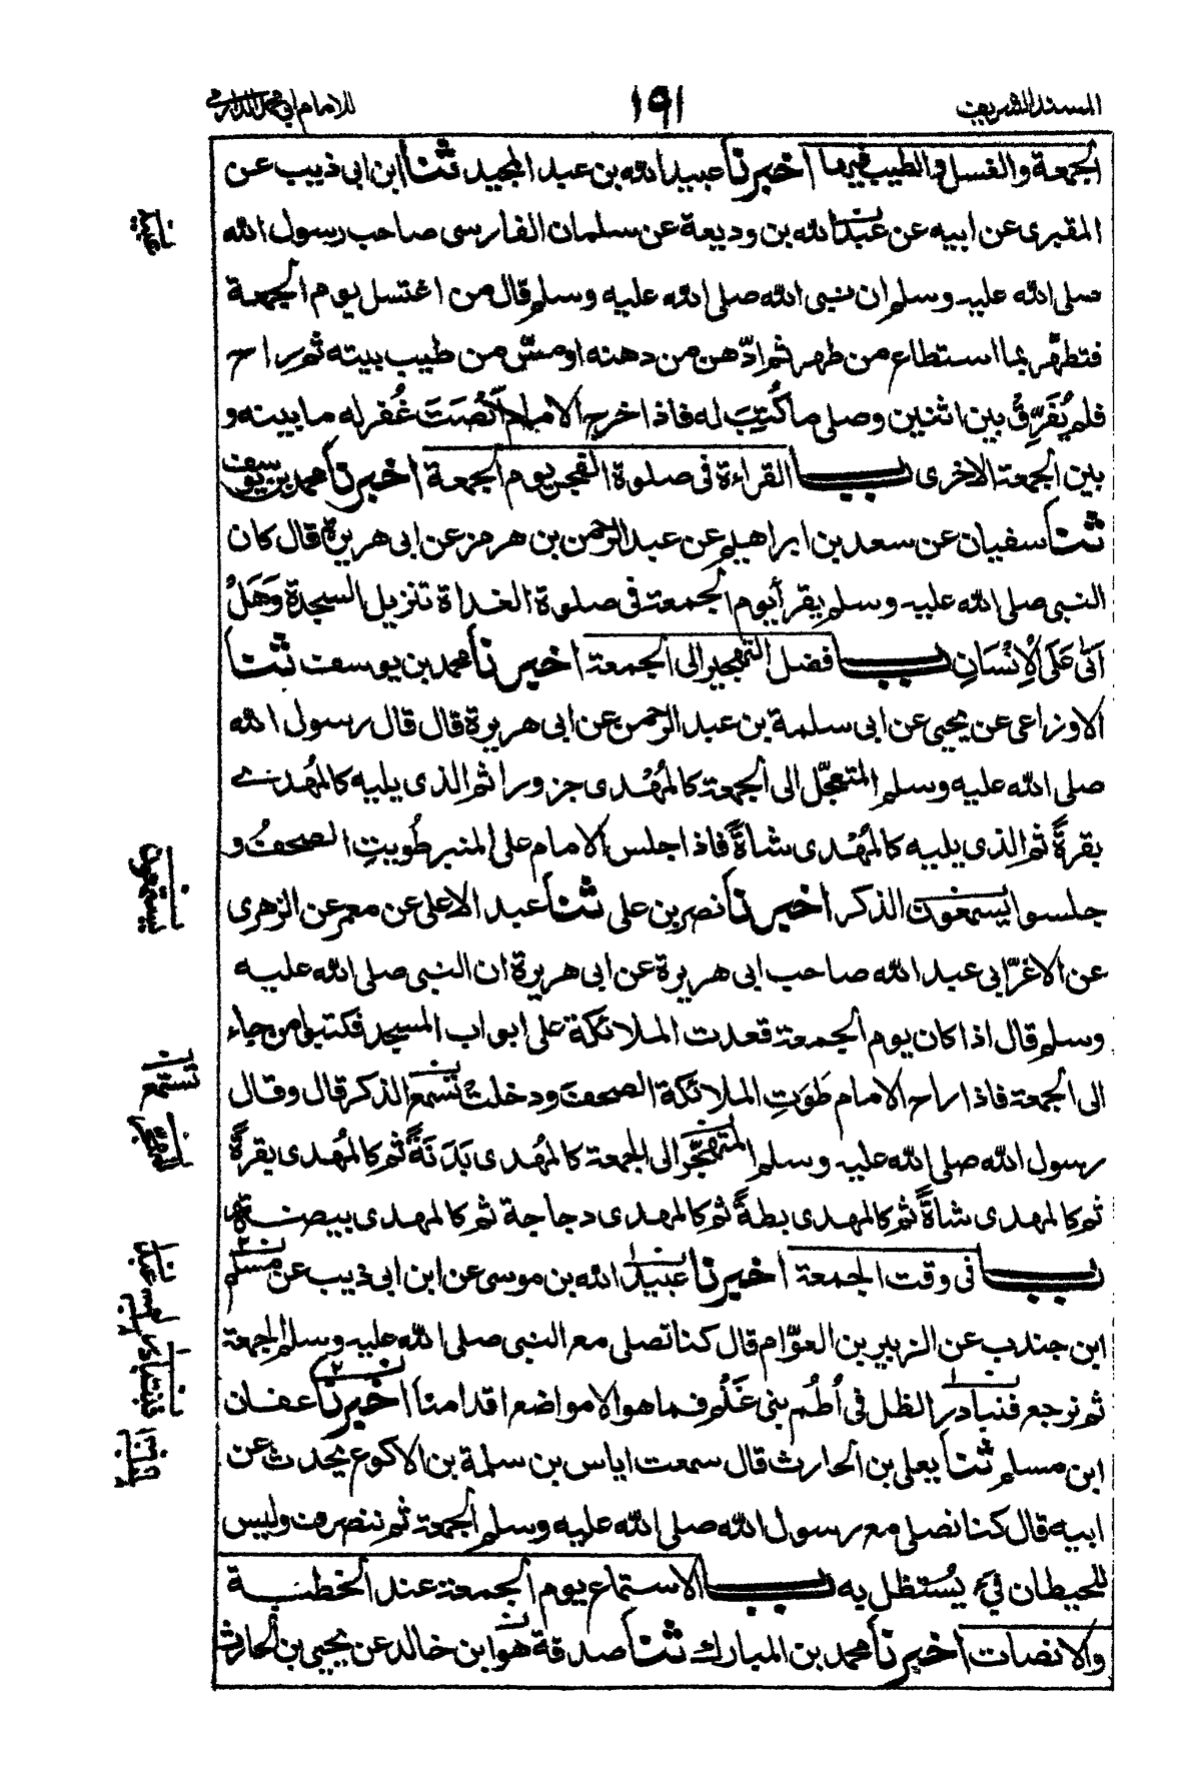 المسند الشريف ١٩١ للامام ابي محمد الدارمي
الجمعة والغسل والطيب فيها اخبرنا عبيد الله بن عبد المجيد ثنا ابن ابى ذيب عن
المقبرى عن ابيه عن عبد الله بن وديعة عن سلمان الفارسى صاحب رسول الله
صلى الله عليه وسلم ان نبى الله صلى الله عليه وسلم قال من اغتسل يوم الجمعة
فتطهّر بما استطاع من طهر ثم ادّهن من دهنه او مسّ من طيب بيته ثم راح
فلم يُفَرِّقْ بين اثنين وصلى ما كُتِبَ له فاذا خرج الامام اَنْصَتَ غُفر له ما بينه و
بين الجمعة الاخرى باب القراءة فى صلوة الفجر يوم الجمعة اخبرنا محمد بن يوسف
ثنا سفيان عن سعد بن ابراهيم عن عبد الرحمن بن هرمز عن ابى هريرة قال كان
النبى صلى الله عليه وسلم يقرأ يوم الجمعة فى صلوة الغداة تنزيل السجدة وَهَلْ
اَتىٰ عَلَى الْاِنْسَانِ باب فضل التهجير الى الجمعة اخبرنا محمد بن يوسف ثنا
الاوزاعى عن يحيى عن ابى سلمة بن عبد الرحمن عن ابى هريرة قال قال رسول الله
صلى الله عليه وسلم المتعجّل الى الجمعة كالمُهْدى جزورا ثم الذى يليه كالمُهدى
بقرةً ثم الذى يليه كالمُهْدى شاةً فاذا جلس الامام على المنبر طُوِيتِ الصحفُ و
جلسوا يسمعون الذكر اخبرنا نصر بن على ثنا عبد الاعلى عن معمر عن الزهرى
عن الاغرّ ابى عبد الله صاحب ابى هريرة عن ابى هريرة ان النبى صلى الله عليه
وسلم قال اذا كان يوم الجمعة قعدت الملائكة على ابواب المسجد فكتبوا من جاء
الى الجمعة فاذا راح الامام طَوَتِ الملائكة الصحف ودخلت تسمع الذكر قال وقال
رسول الله صلى الله عليه وسلم المتهجّر الى الجمعة كالمُهدى بَدَنَةً ثم كالمُهدى بقرةً
ثم كالمهدى شاةً ثم كالمهدى بطةً ثم كالمهدى دجاجة ثم كالمهدى بيضة
باب فى وقت الجمعة اخبرنا عبيد الله بن موسى عن ابن ابى ذيب عن مسلم
ابن جندب عن الزبير بن العوّام قال كنا نصلى مع النبى صلى الله عليه وسلم الجمعة
ثم نرجع فنبادر الظل فى اُطُم بنى غَنْم فما هو الا مواضع اقدامنا اخبرنا عفان
ابن مسلم ثنا يعلى بن الحارث قال سمعت اياس بن سلمة بن الاكوع يحدث عن
ابيه قال كنا نصلى مع رسول الله صلى الله عليه وسلم الجمعة ثم ننصرف وليس
للحيطان فىء يُستظل به باب الاستماع يوم الجمعة عند الخطبة
والانصات اخبرنا محمد بن المبارك ثنا صدقة هو ابن خالد عن يحيى بن الحارث